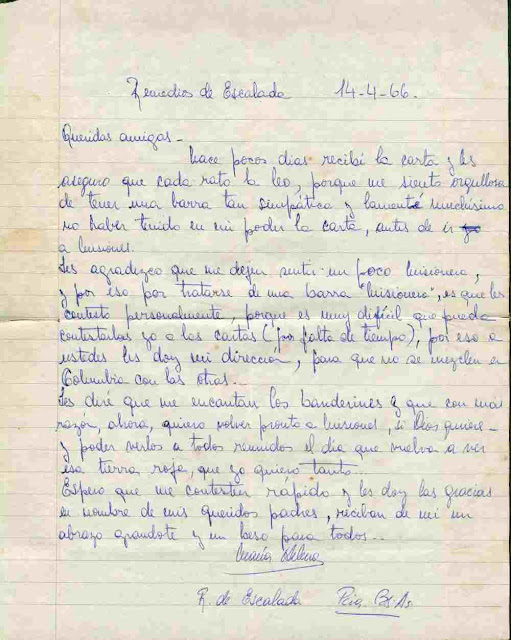 Remedios de Escalada 14-4-66.
Queridas amigas -
hace pocos dias recibí la carta y les
aseguro que cada rato la leo, porque me siento orgullosa
de tener una barra tan simpática y lamenté muchísimo
no haber tenido en mi poder la carta, antes de ir yo
a Misiones.
Les agradezco que me dejen sentir un poco misionera,
y por eso por tratarse de una barra "misionera", es que les
contesto personalmente, porque es muy difícil que pueda
contestarlas yo a las cartas (por falta de tiempo), por eso a
ustedes les doy mi dirección, para que no se mezclen en
Columbia con las otras...
Les diré que me encantan los banderines y que con más
razón, ahora, quiero volver pronto a Misiones, si Dios quiere -
y poder verlos a todos reunidos el dia que vuelva a ver
esa tierra roja, que yo quiero tanto...
Espero que me contesten rápido y les doy las gracias
en nombre de mis queridos padres, reciban de mi un
abrazo grandote y un beso para todos...
María Helena
R. de Escalada Pcia. Bs. As.